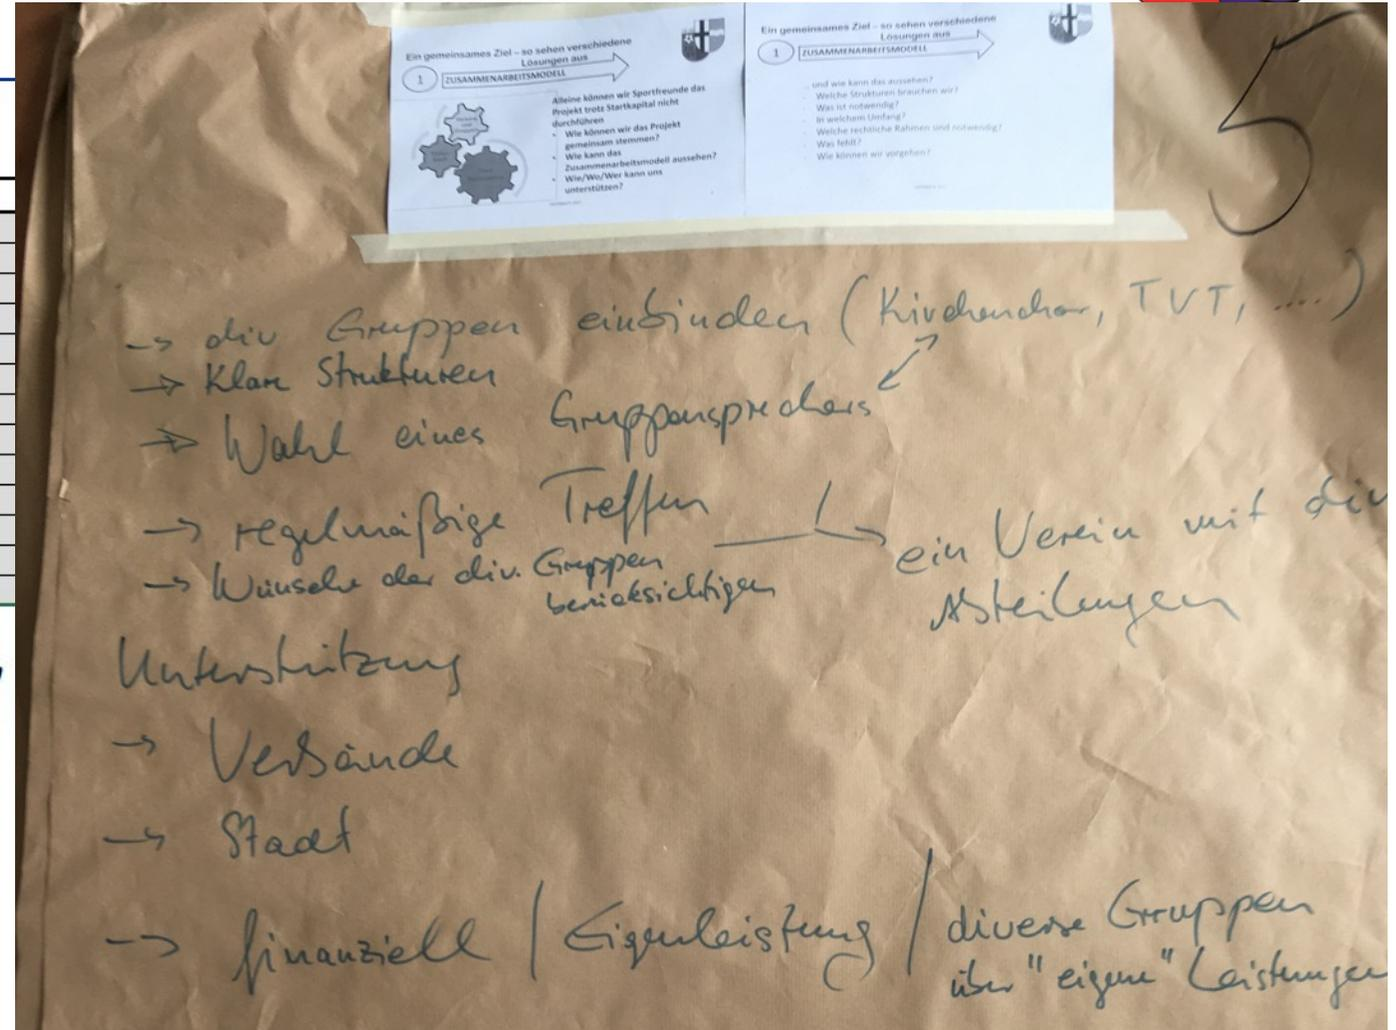 Ein gemeinsames Ziel – so sehen verschiedene
Lösungen aus
1
ZUSAMMENARBEITSMODELL
Alleine können wir Sportfreunde das
Projekt trotz Startkapital nicht
durchführen
• Wie können wir das Projekt
gemeinsam stemmen?
• Wie kann das
Zusammenarbeitsmodell aussehen?
• Wie/Wo/Wer kann uns
unterstützen?
Ein gemeinsames Ziel – so sehen verschiedene
Lösungen aus
1
ZUSAMMENARBEITSMODELL
.. und wie kann das aussehen?
Welche Strukturen brauchen wir?
Was ist notwendig?
In welchem Umfang?
Welche rechtliche Rahmen sind notwendig?
Was fehlt?
Wie können wir vorgehen?
5
-> div Gruppen einbinden (Kirchenchor, TVT, ....)
-> Klare Strukturen
-> Wahl eines Gruppensprechers
-> regelmäßige Treffen
-> Wünsche der div. Gruppen
berücksichtigen
ein Verein mit div
Abteilungen
Unterstützung
-> Verbände
-> Stadt
-> finanziell / Eigenleistung / diverse Gruppen
über "eigene" Leistungen